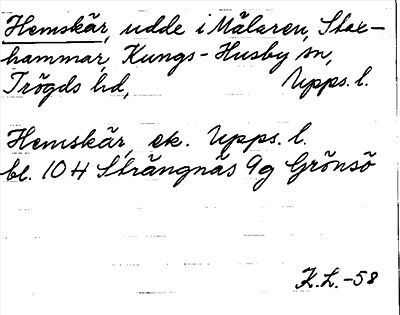 Hemskär, udde i Mälaren, Stox-
hammar, Kungs-Husby sn,
Trögds hd, Upps. l.
Hemskär, ek. Upps. l.
bl. 10 H Strängnäs 9g Grönsö
K.L.-58